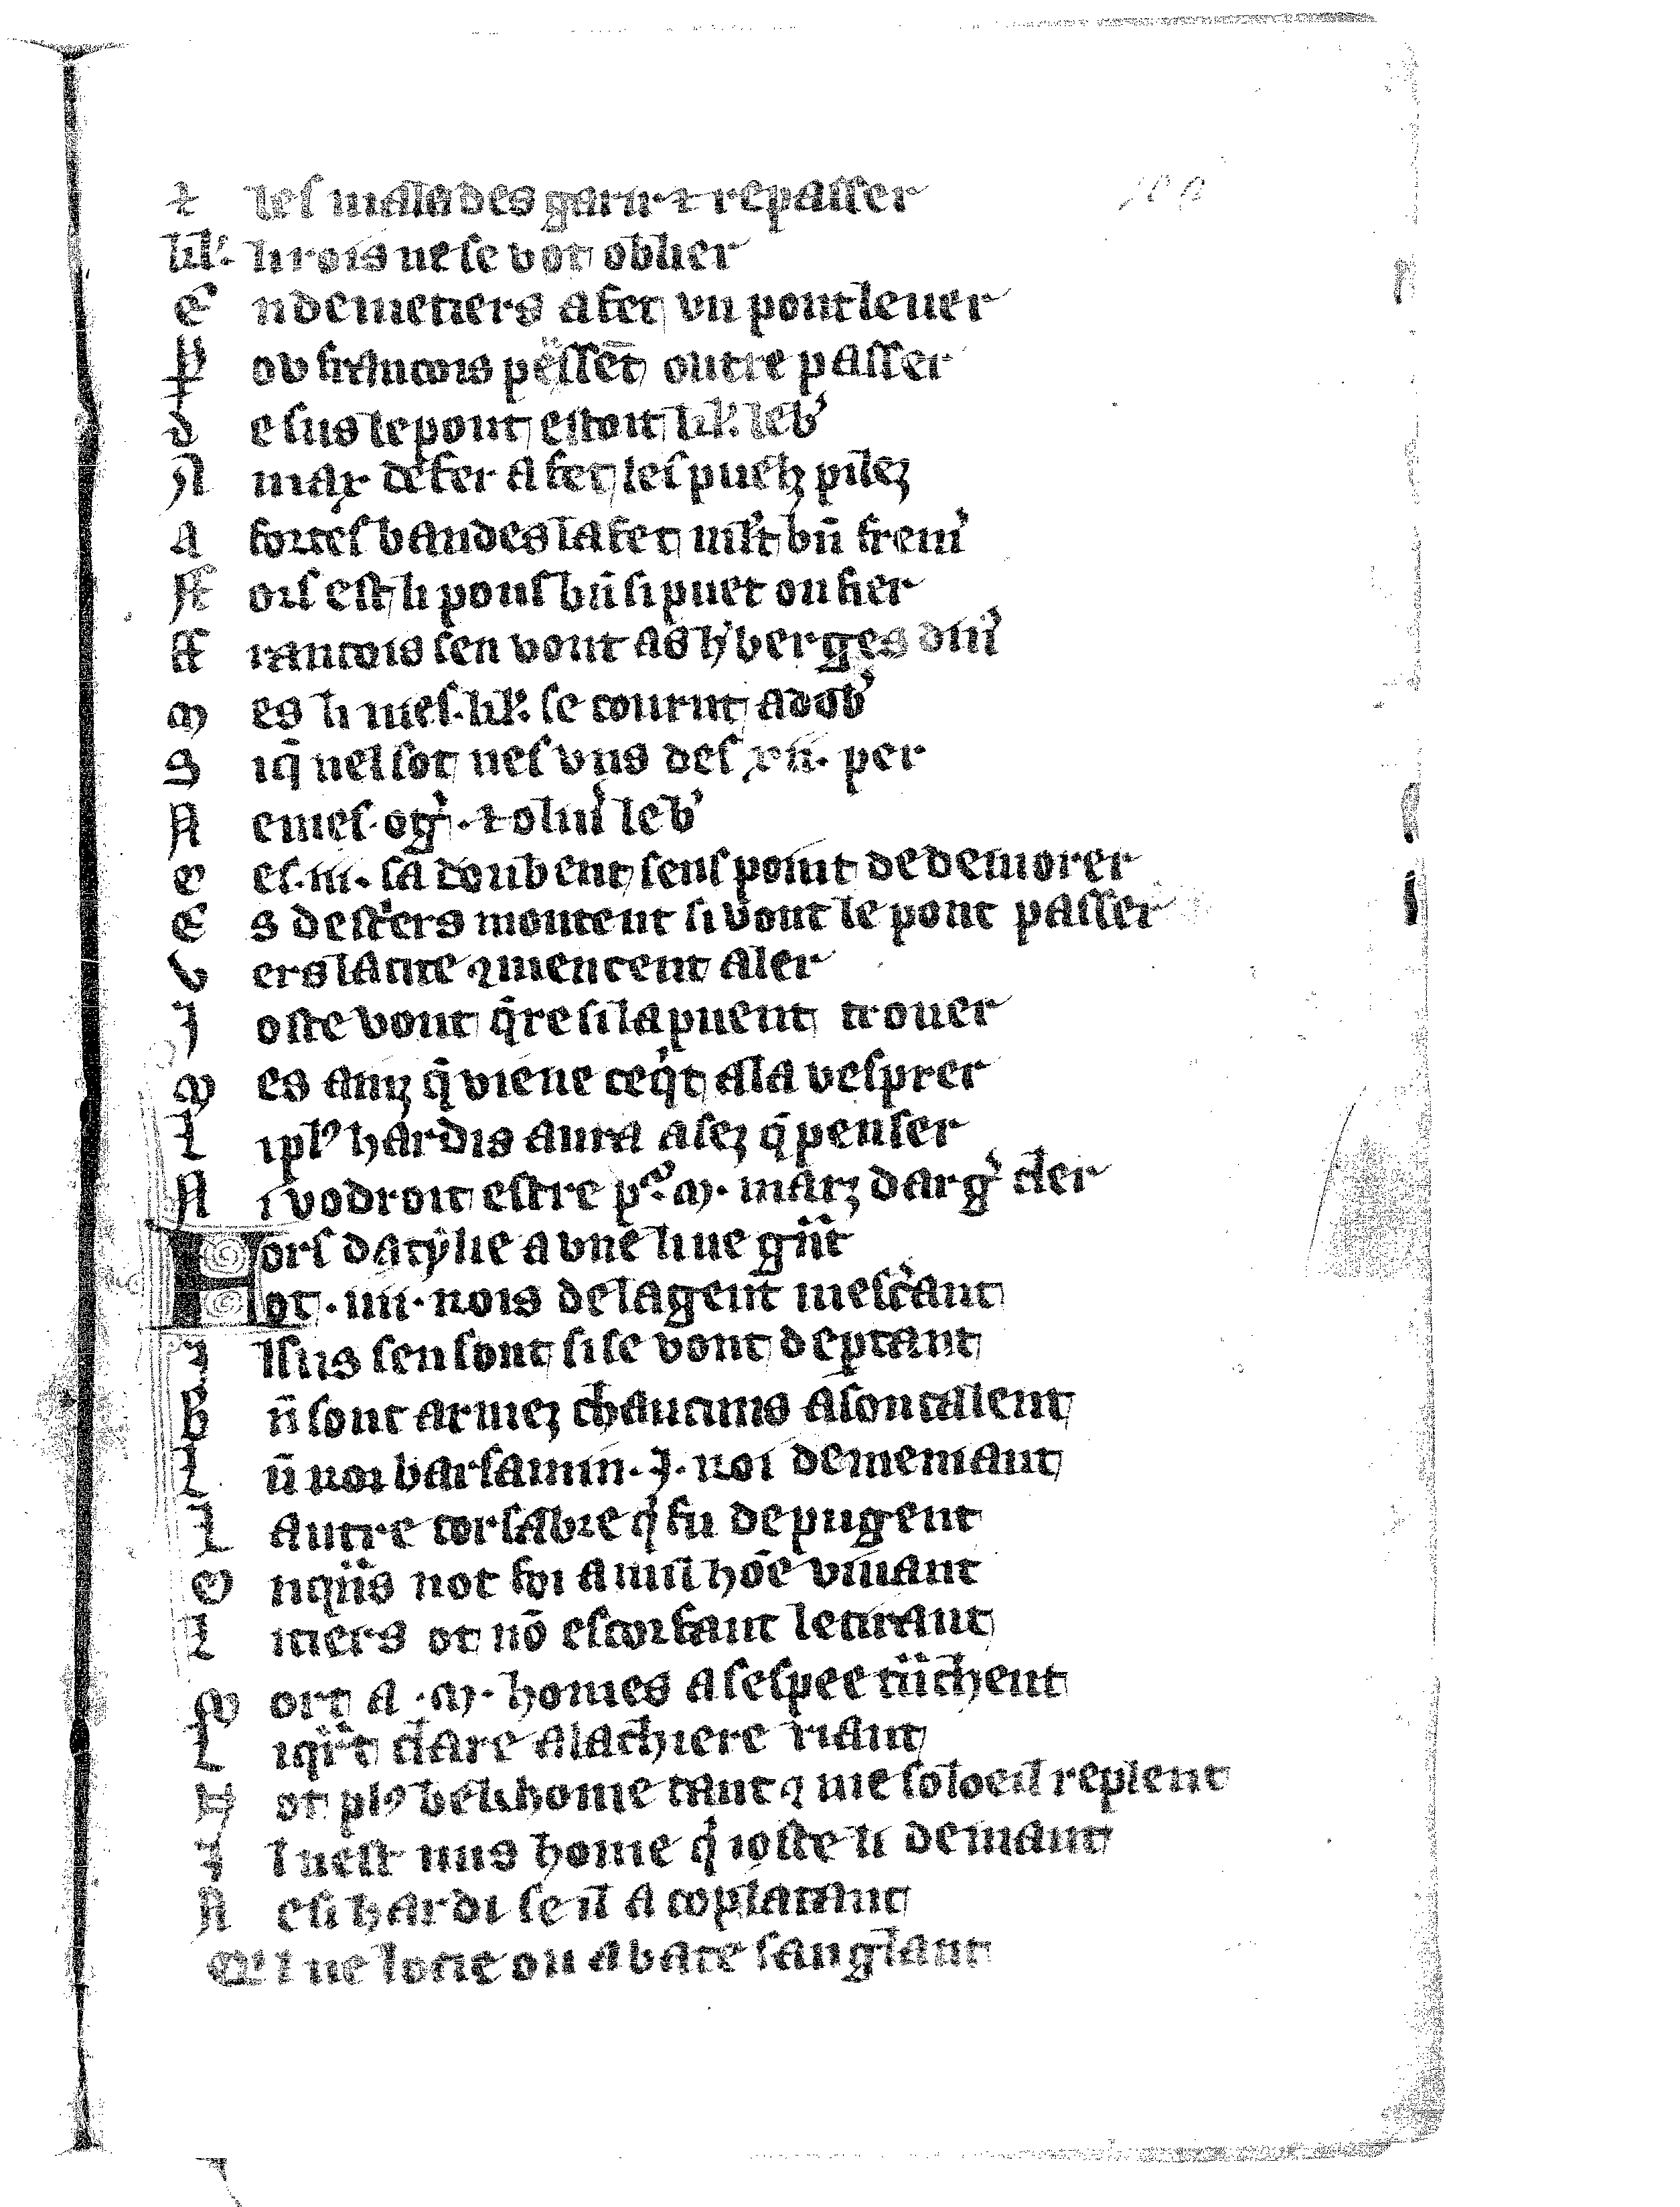 ⁊ les malades garir ⁊ repasser
kl'. li rois ne se vot oblier
E ndemetiers a fet vn pont leuer
P ov francois peussēt outre passer
d e sus le pont estoit kl'. le b'
A max de fer a fet les puetz pilez
a fortes bandes la fet mlt bn̄ frem'
F ors est li pons bn̄ si puet on fier
F rancois sen vont as h'berges din'
M es li nies. kl'. se courut adob'
S iq̄ nel sot nes vns des .xii. per
N e mes. og'. ⁊ oliu' le b'
C es .iii. sadoubent sens point de demorer
E s dest'ers montent si vont le pont passer
V ers latire ꝯmencent aler
J oste vont q̄re si la puent trouer
M es anz q̄ viene ceq't ala vesprer
L i plꝰ hardis aura asez q̄ penser
N i vodroit estre pʳ .M. marz darg' cler
Hors datylie a vne liue g̃nt
Hot .iiii. rois de la gent mesc'ant
J lsus sen sont si se vont deptant
B n̄ sont armez chaucuns a son talent
L ū roi barsamin .J. roi demeniant
L autre corsabre q' fu de pugent
O nq̄s not foi a nul hōe viuant
L i tiers ot nō escorfant le tirant
M ort a .M. homes a sespee t̃nchent
L i q̃rt clare a la chiere riant
N ot plꝰ bel home tant ꝯme soloeil resplent
J l nest nus home q' ioste li demant
N e si hardi se il a cop latant
Q' l ne locie ou abate sanglant